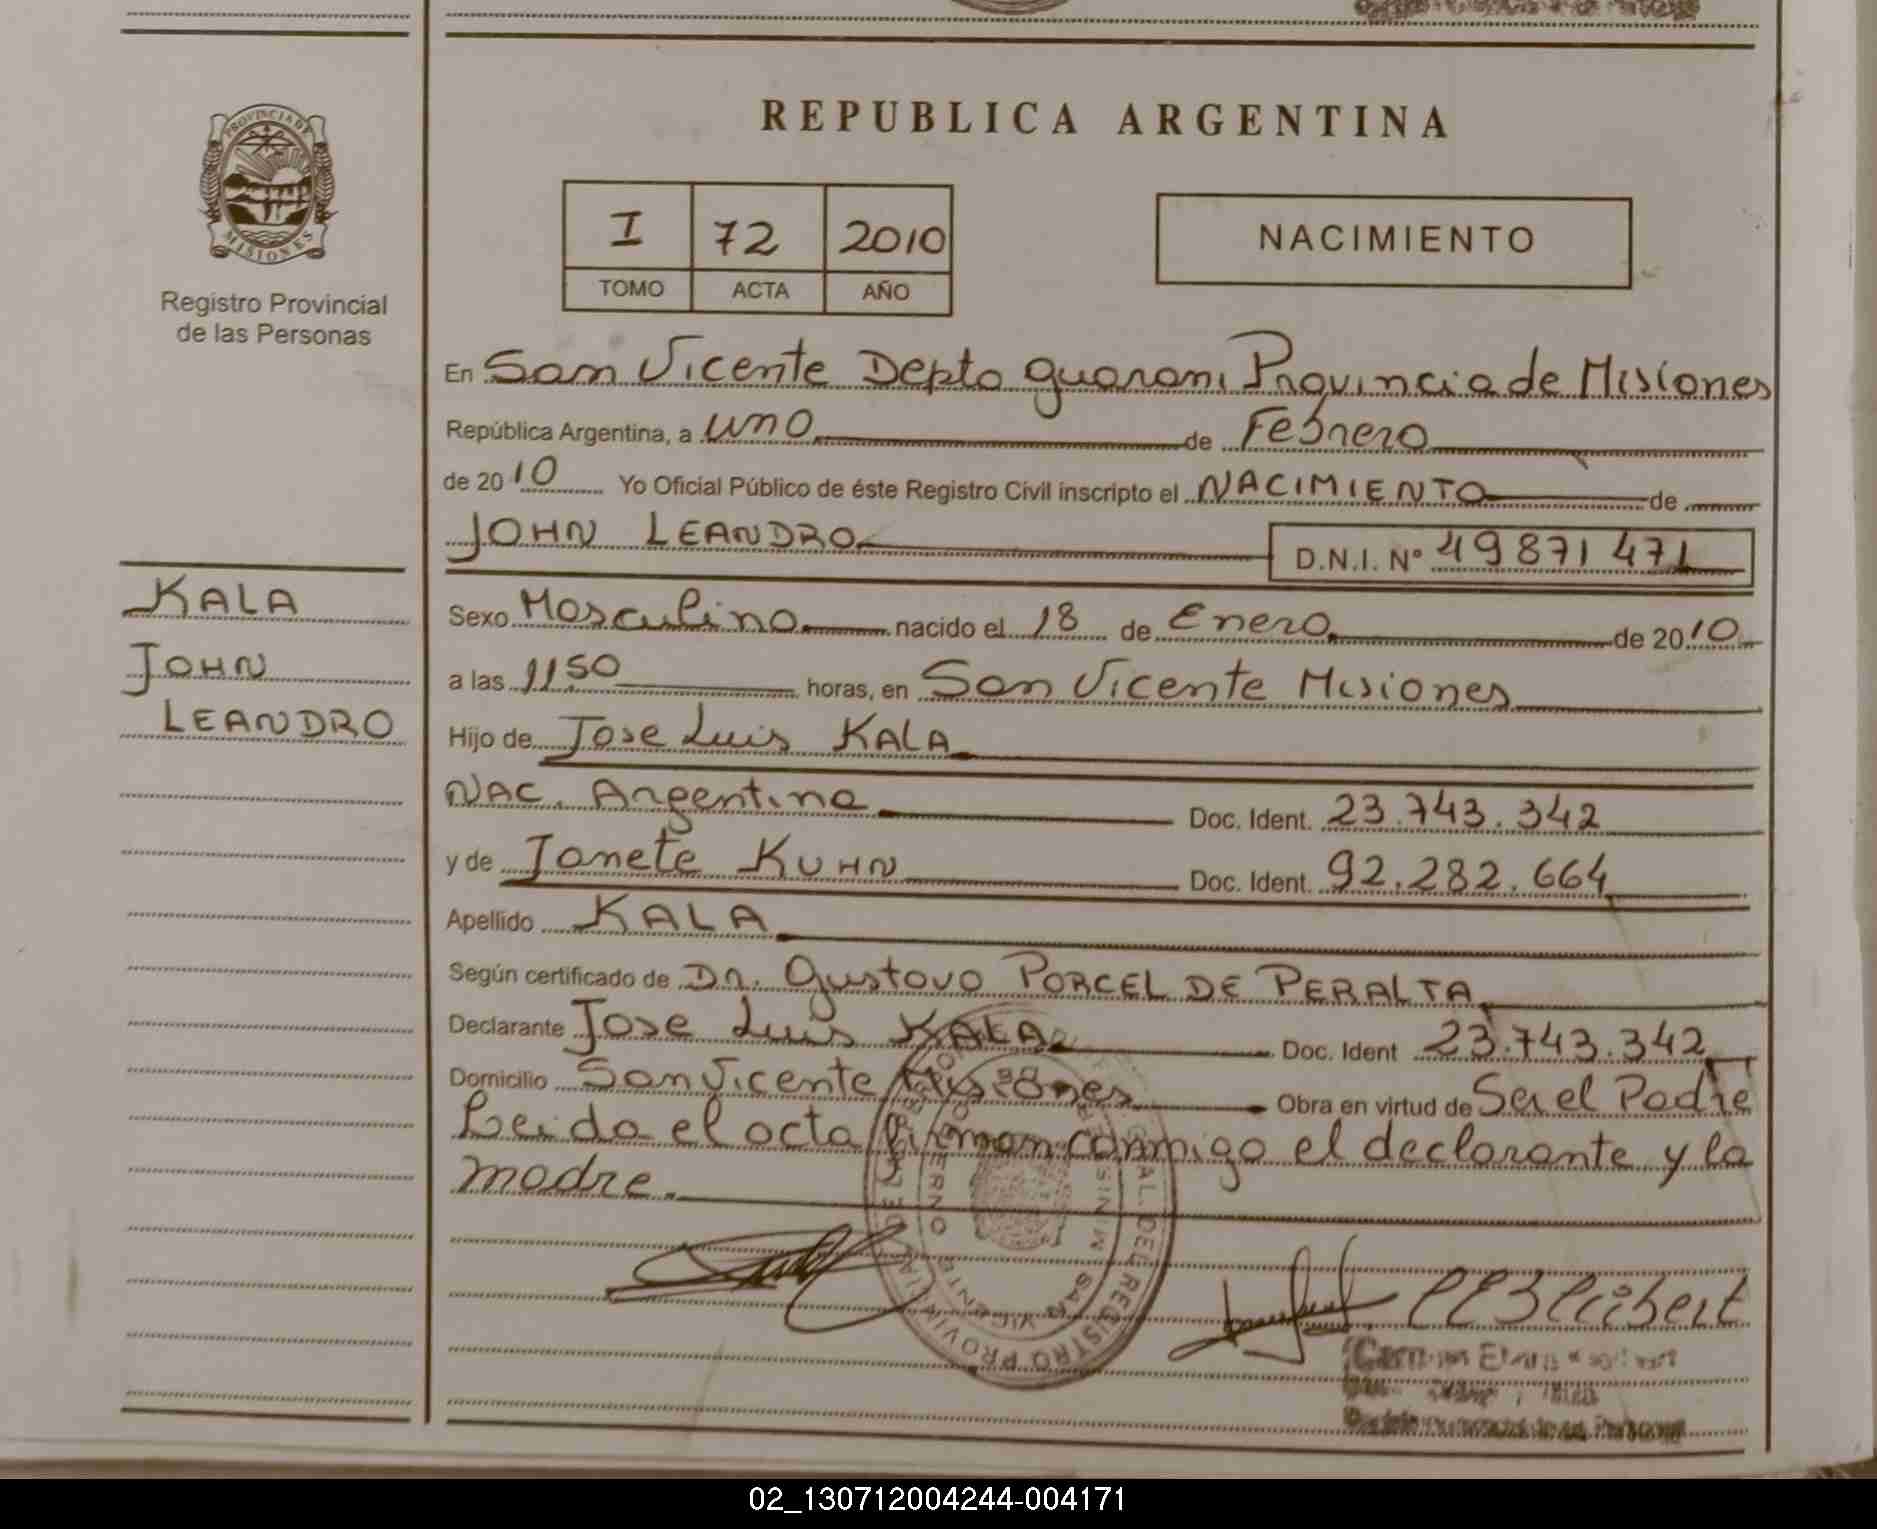 REPUBLICA ARGENTINA
PROVINCIA DE MISIONES
Registro Provincial
de las Personas
I 72 2010
TOMO ACTA AÑO
NACIMIENTO
En San Vicente Depto Guarani Provincia de Misiones
República Argentina, a uno de Febrero
de 2010 Yo Oficial Público de éste Registro Civil inscripto el NACIMIENTO de
JOHN LEANDRO D.N.I. Nº 49871471
KALA
JOHN
LEANDRO
Sexo Masculino nacido el 18 de Enero de 2010
a las 11,50 horas, en San Vicente Misiones
Hijo de Jose Luis KALA
NAC. Argentina Doc. Ident. 23.743.342
y de Janete KUHN Doc. Ident. 92.282.664
Apellido KALA
Según certificado de Dr. Gustavo PORCEL DE PERALTA
Declarante Jose Luis KALA Doc. Ident 23.743.342
Domicilio San Vicente Misiones Obra en virtud de Ser el Padre
Leida el acta firman conmigo el declarante y la
madre.
02_130712004244-004171